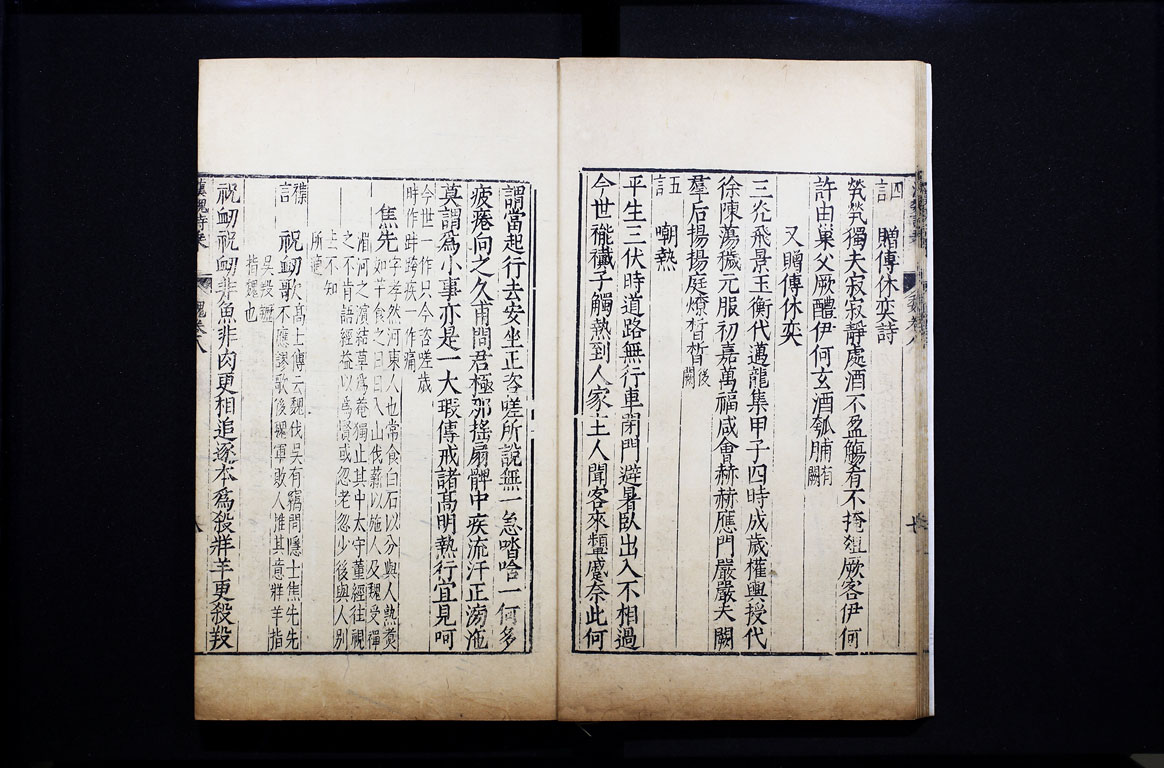 四言
贈傅休奕詩
煢煢獨夫寂寂靜處酒不盈觴肴不掩俎厥客伊何
許由巢父厥醴伊何玄酒瓠脯有闕
又贈傅休奕
三光飛景玉衡代邁龍集甲子四時成歲權輿授代
徐陳蕩穢元服初嘉萬福咸會赫赫應門嚴嚴夫闕
羣后揚揚庭燎晢晢後闕
五言
嘲熱
平生三伏時道路無行車閉門避暑臥出入不相過
今世褦襶子觸熱到人家主人聞客來顰蹙奈此何
謂當起行去安坐正咨嗟所說無一急喈唅一何多
疲瘠向之久甫問君極那搖扇髀中疾流汗正滂沱
莫謂爲小事亦是一大瑕傳戒諸高明熱行宜見呵
今世一作只今咨嗟歲
時作時跨疾一作痛
焦先字孝然河東人也常食白石以分與人熱煑
如芋食之日日入山伐薪以施人及魏受禪
濵河之濵結草爲菴獨止其中太守董經往視
之不肯語經益以爲賢或忽老忽少後與人別
去不知
所適
襍言
祝衂歌高士傳云魏伐吳有竊問隱士焦先先
不應謬歌後魏軍敗人推其意牂羊指
吳羖䍽
指魏也
祝衂祝衂非魚非肉更相追逐本爲殺牂羊更殺羖
漢魏詩集
魏卷八
八